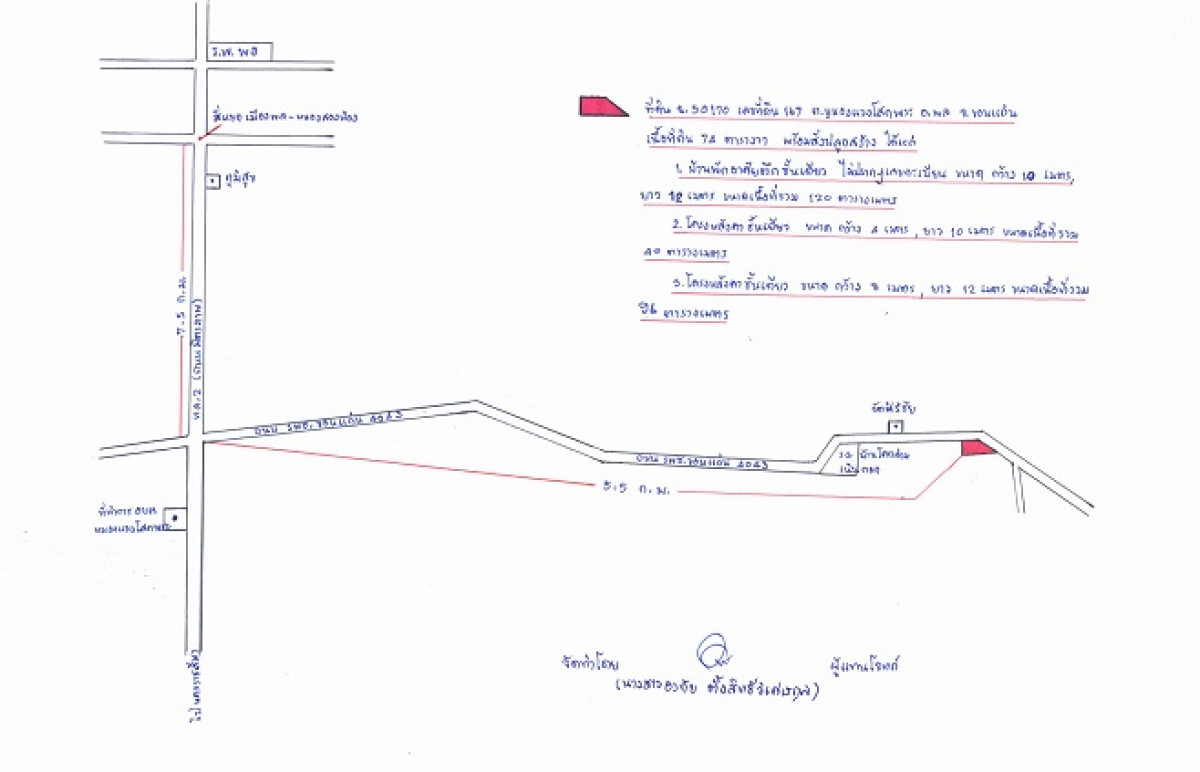 ร.พ. พล
สี่แยก เมืองพล - หนองสองห้อง
ภูมิสุข
7.5 ก.ม.
ทล.2 (ถนนมิตรภาพ)
ที่ดิน ฉ.50170 เลขที่ดิน 167 ต.หนองแวงโสกพระ อ.พล จ.ขอนแก่น
เนื้อที่ดิน 74 ตารางวา พร้อมสิ่งปลูกสร้าง ได้แก่
1. บ้านพักอาศัยตึกชั้นเดียว ไม่ปรากฏเลขทะเบียน ขนาด กว้าง 10 เมตร,
ยาว 12 เมตร ขนาดเนื้อที่รวม 120 ตารางเมตร
2. โครงหลังคาชั้นเดียว ขนาด กว้าง 4 เมตร, ยาว 10 เมตร ขนาดเนื้อที่รวม
40 ตารางเมตร
3. โครงหลังคาชั้นเดียว ขนาด กว้าง 8 เมตร, ยาว 12 เมตร ขนาดเนื้อที่รวม
96 ตารางเมตร
ถนน รพช. ขอนแก่น 4043
ถนน รพช. ขอนแก่น 4043
5.5 ก.ม.
รร. บ้านโคกล่าม
ที่ทำการ อบต
หนองแวงโสกพระ
ไปนครราชสีมา
จัดทำโดย ผู้แทนโจทก์